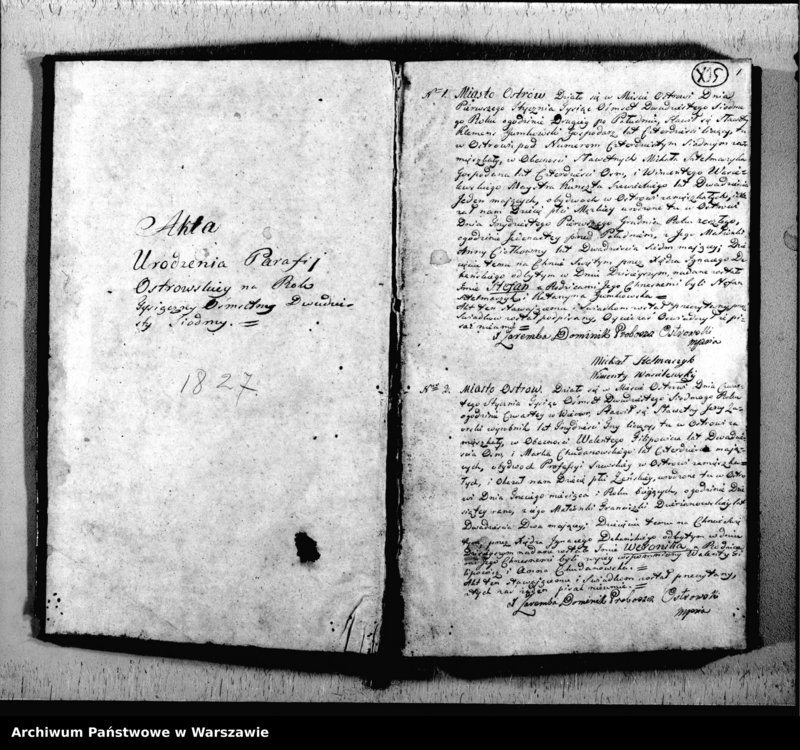 Akta
Urodzenia Parafij
Ostrowskiey na Rok
Tysiączny Osmsetny Dwudzie-
sty Siodmy.
1827
XV5
1
Nro 1. Miasto Ostrow Działo się w Mieście Ostrowi Dnia
Pierwszego Stycznia Tysiąc Ośmset Dwudziestego Siodme-
go Roku o godzinie Drugiey po Południu, Stawił się Sławetny
Klemens Gumkowski Gospodarz lat Czterdzieści liczący tu
w Ostrowi pod Numerem Czterdziestym Siodmym za-
mieszkały, w Obecności Sławetnych Michała Stelmaszyka
Gospodarza lat Czterdzieści Ośm, i Wincentego Wasi-
lewskiego Magistra Kunsztu Szewskiego lat Dwadzieścia
Jeden maiących, obydwoch w Ostrowi zamieszkałych, i oka-
zał nam Dziecię płci Męzkiey urodzone tu w Ostrowi
Dnia Trzydziestego Pierwszego Grudnia Roku zeszłego,
o godzinie Jedenastey przed Południem, z Jego Małżonki
Anny lat Dwadzieścia Siedm maiącey Dzie-
cięciu temu na Chrzcie Świętym przez Xiędza Ignacego
odbytym w Dniu Dzisieyszym, nadane zostało
Imie Stefan a Rodzicami Jego Chrzestnemi byli Stefan
Stelmaszyk i Katarzyna Gumkowska
Akt ten Stawaiącemu i Świadkom został przeczytany przez
Świadkow został podpisany, Oyciec zaś Oświadczył iż pi-
sać nieumie
X Zaremba Dominik Proboszcz Ostrowski
mppria
Michał Stelmaszyk
Wincenty Wasilewski
Nro 2. Miasto Ostrow. Działo się w Mieście Ostrowi Dnia Czwar-
tego Stycznia Tysiąc Ośmset Dwudziestego Siodmego Roku
o godzinie Czwartey w Wieczor, Stawił się Sławetny Jerzy
wyrobnik lat Trzydzieści Trzy liczący tu w Ostrowi za-
mieszkały, w Obecności Walentego Filipowicza lat Dwadzie-
ścia Ośm i Marka Chudanowskiego lat Czterdzieści maią-
cych, obydwoch Professyi Szewskiey w Ostrowi zamieszka-
łych, i okazał nam Dziecię płci Żeńskiey, urodzone tu w Ostro-
wi Dnia Trzeciego miesiąca i Roku bieżących, o godzinie Dzie-
siątey rano, z iego Małżonki Franciszki lat
Dwadzieścia Dwa maiącey. Dziecięciu temu na Chrzcie Ś.
przez Xiędza Ignacego odbytym w dniu
Dzisieyszym nadane zostało Imie Weronika, a Rodzica-
mi iego Chrzestnemi byli wyżey wspomniony Walenty Fi-
lipowicz i Anna Chudanowska.
Akt ten Stawaiącemu i Świadkom został przeczytany,
z tych zaś żaden pisać nieumie
X Zaremba Dominik Proboszcz Ostrowski
mppria
Archiwum Państwowe w Warszawie